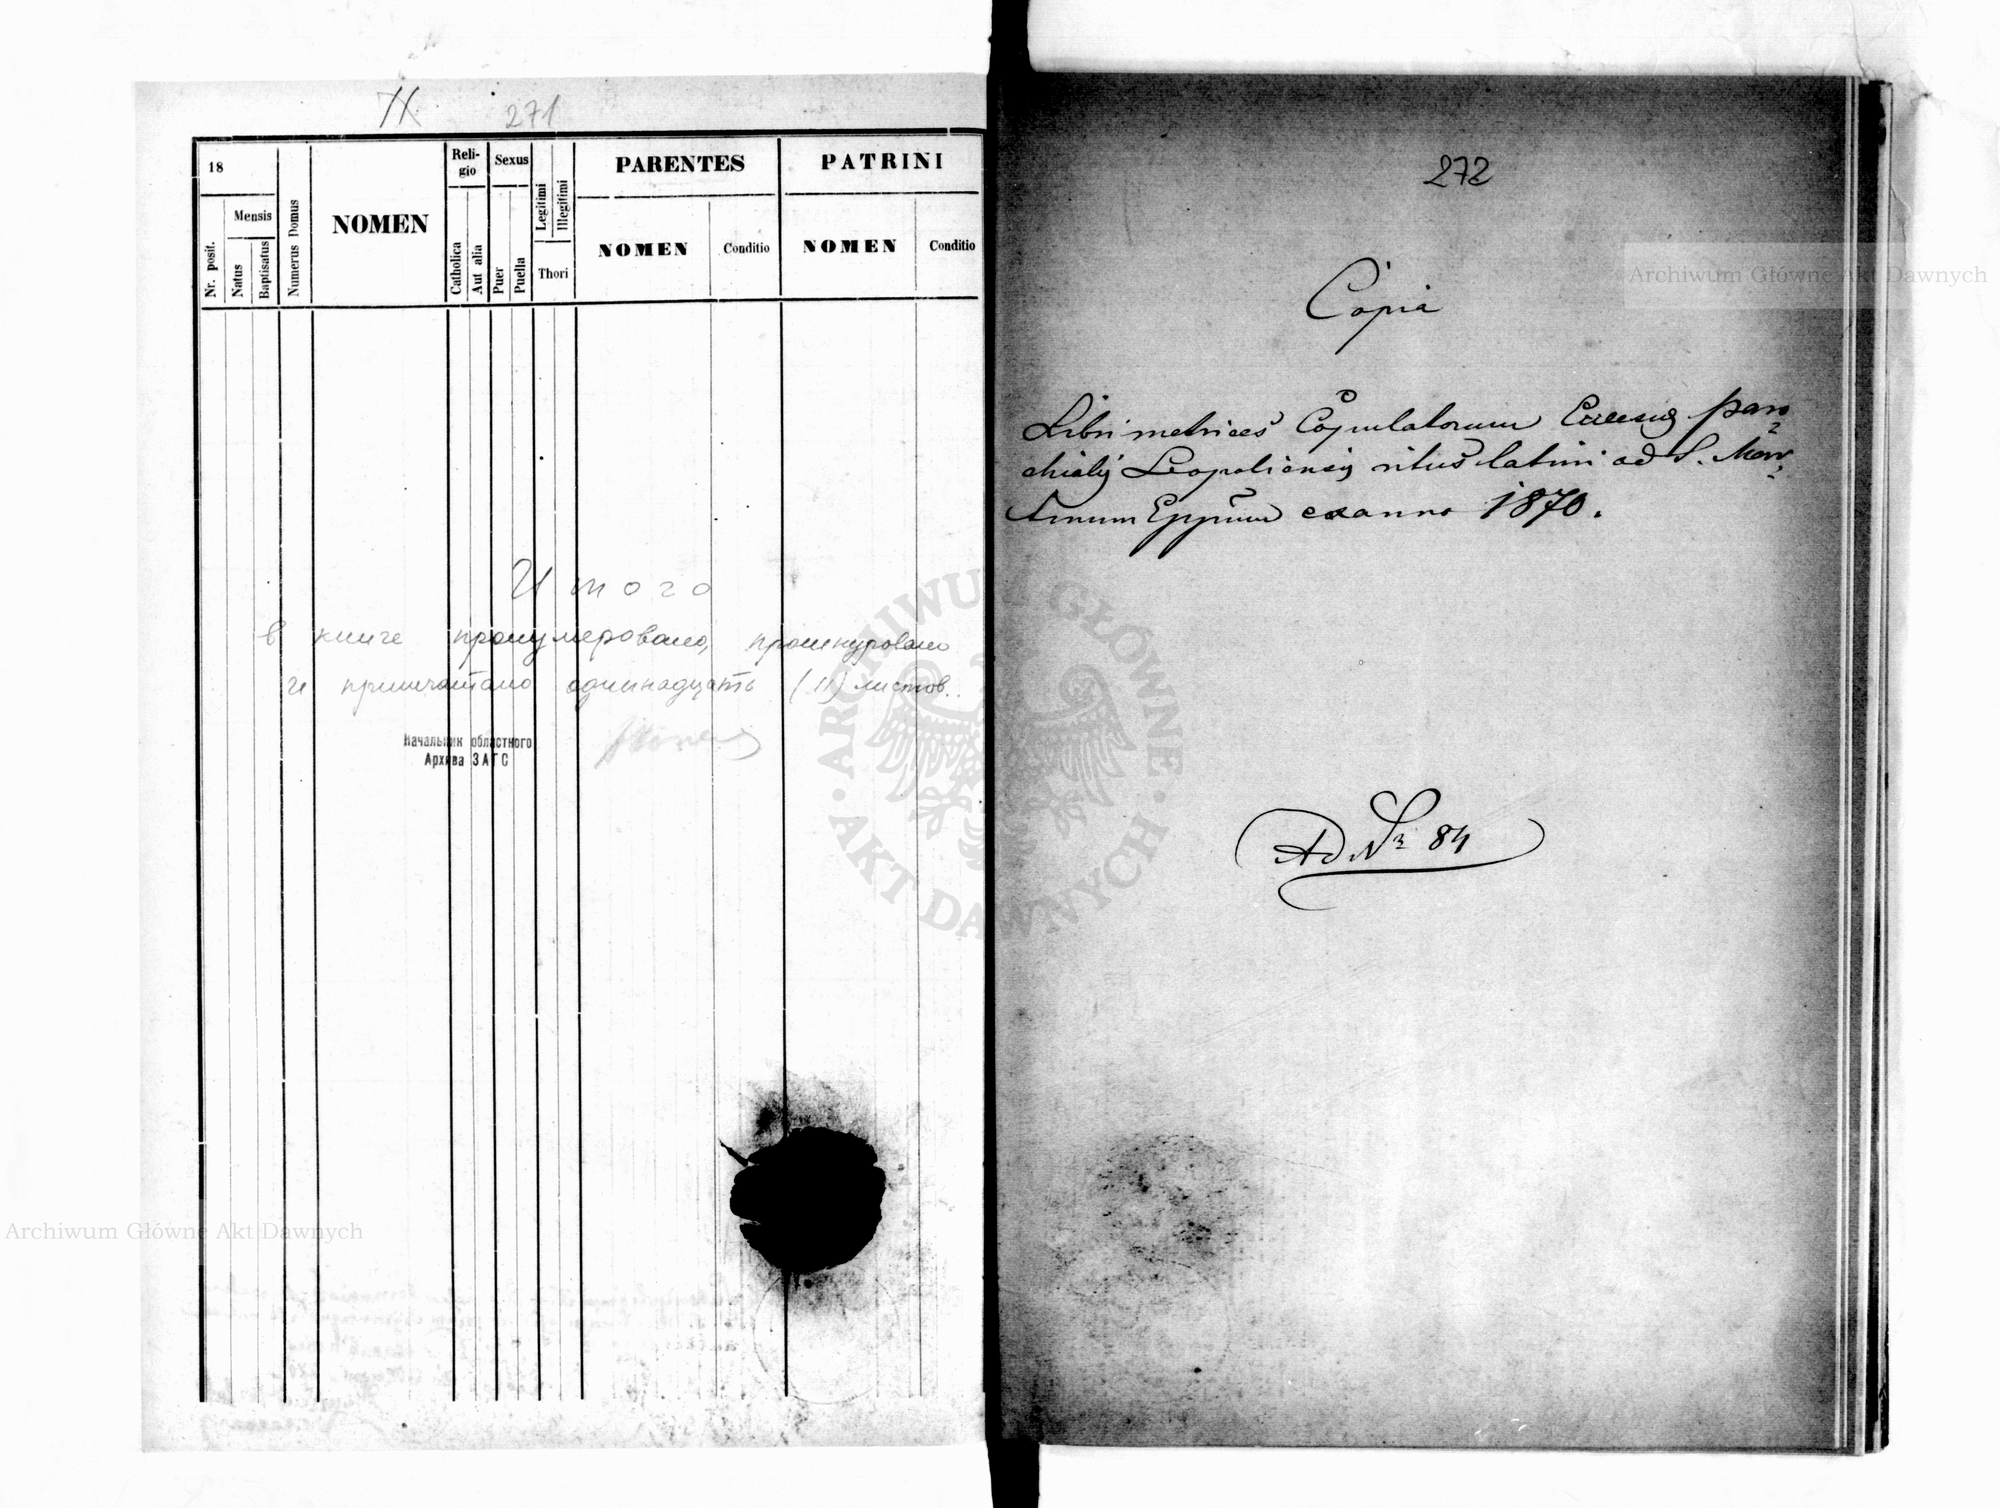 271
18
Mensis
Nr. posit.
Natus
Baptisatus
Numerus Domus
NOMEN
Reli-
gio
Catholica
Aut alia
Sexus
Puer
Puella
Legitimi
Illegitimi
Thori
PARENTES
NOMEN
Conditio
PATRINI
NOMEN
Conditio
Итого
в книге пронумеровано, прошнуровано
и припечатано одиннадцать (11) листов.
Начальник областного
Архива ЗАГС
272
Copia
Libri metrices Copulatorum Eccesiӕ paro
chialis Leopoliensis ritus latini ad S. Mar
tinum Eppum ex anno 1870.
Ad Nr 84
Archiwum Główne Akt Dawnych
Archiwum Główne Akt Dawnych
ARCHIWUM GŁÓWNE · AKT DAWNYCH ·